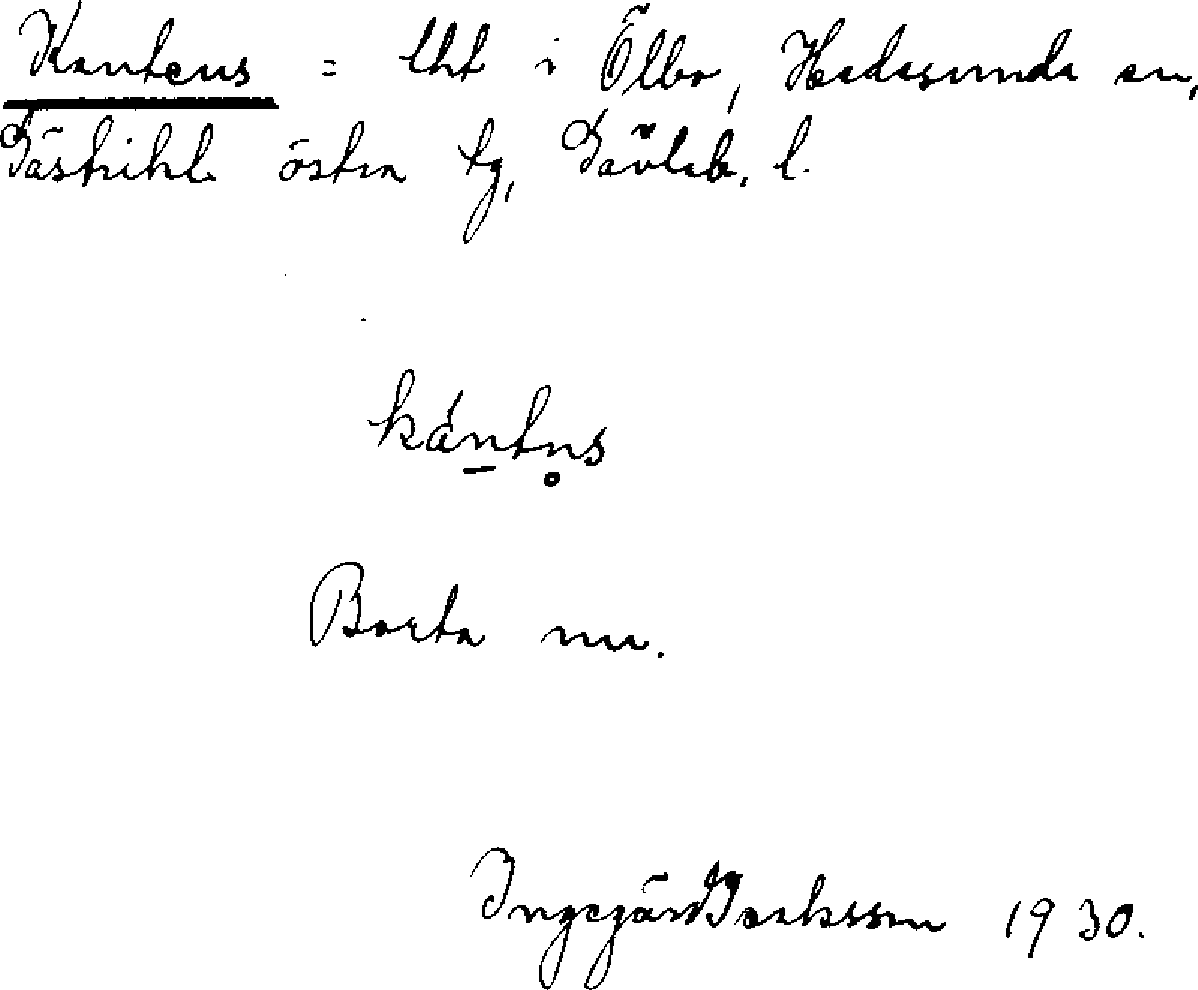 Kantens = lht i Ölbo, Hedesunda sn,
Gästrikl. östra tg, Gävleb. l.
kántn̥s
Borta nu.
Ingegärd Isaksson 1930.